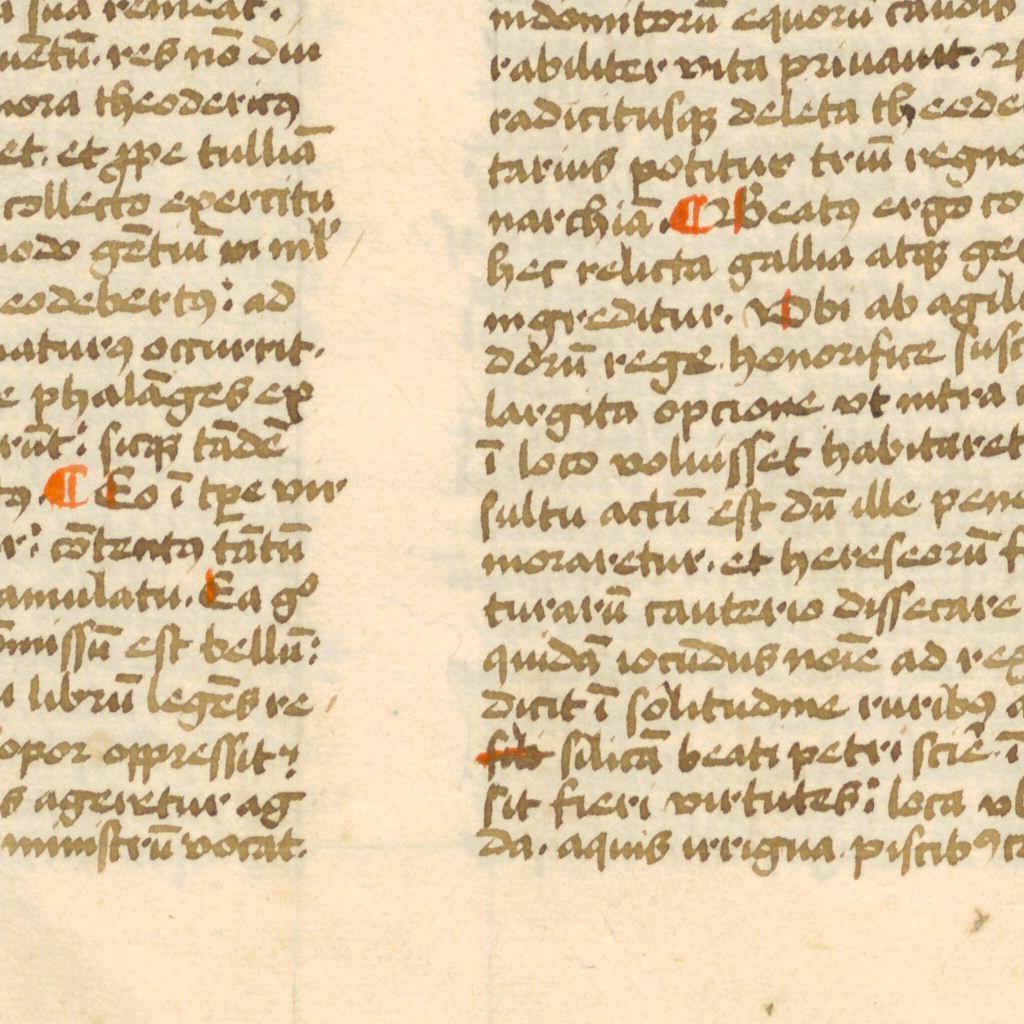 sua remeat.
uētū. res nō diu
mora theodericꝯ
et. et ꝓpe tulliā
collecto exercitu
modo gētiū in
eodebertꝯ: ad
naturꝯ occurrit.
e phalāges ex
rūt: sicqꝫ tādē
tꝯ. ¶ Eo ī tp̄e vir
r: cōtentꝯ tātū
amulatu. Ea gͦ
ōmissū est bellū:
librū legēs re
opor oppressit:
s ageretur ag
ministrū vocat.
indomitorū equorū caudis
rabiliter vita priuauit.
radicitusqꝫ deleta theode
tarius potitur triū regno
narchiā. ¶ Beatꝯ ergo co
hec relicta gallia atqꝫ ger
ingreditur. Vbi ab agilu
dorū rege honorifice susc
largita opcione vt intra
ī loco voluisset habitaret
sultu actū est dū ille pene
moraretur. et hereseorū f
turarū cauterio dissecare
quidā iocūdus noīe ad reg
dicit ī solitudine ruribꝯ a
silicā beati petri sciē. ī
sit fieri virtutes: loca vb
da. aquis irrigua. piscibꝯ co